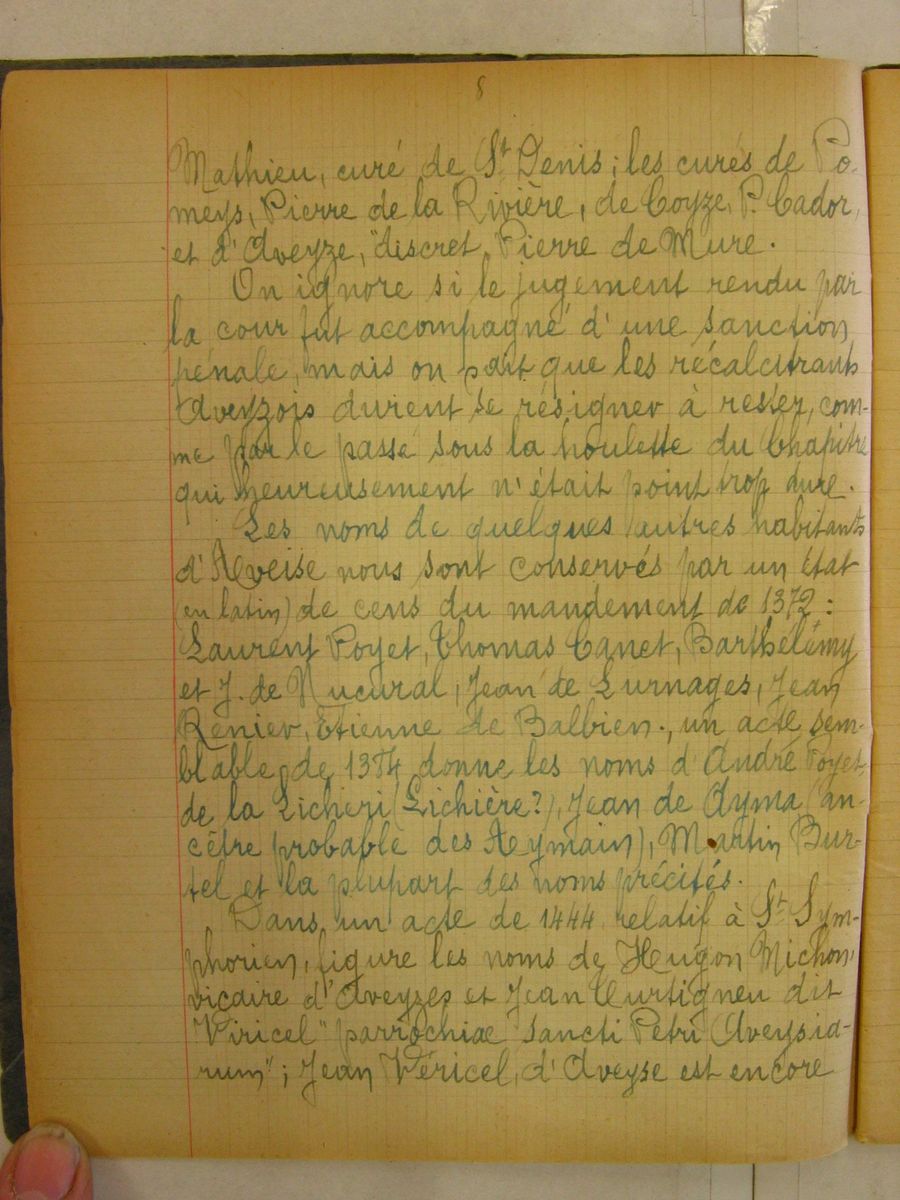 8
Mathieu, curé de St Denis; les curés de Po-
meys, Pierre de la Rivière, de Coyze, P. Cador,
et d'Aveyze, "discret" Pierre de Mure.
On ignore si le jugement rendu par
la cour fut accompagné d'une sanction
pénale, mais on sait que les récalcitrants
Aveyzois durent se résigner à rester, com-
me par le passé sous la houlette du Chapitre
qui heureusement n'était point trop dure.
Les noms de quelques autres habitants
d'Aveise nous sont conservés par un état
(en latin) de cens du mandement de 1372 :
Laurent Poyet, Thomas Canet, Barthélémy
et J. de Nucural, Jean de Lurnages, Jean
Renier, Etienne de Balbien., un acte sem-
blable de 1384 donne les noms d'André Poyet,
de la Licheri (Lichière?), Jean de Ayma (an-
cêtre probable des Aymain), Martin Bur-
tel et la plupart des noms précités.
Dans un acte de 1444 relatif à St Sym-
phorien, figure les noms de Hugon Michon,
vicaire d'Aveyzes et Jean Curtigneu dit
Viricel "parrochiæ sancti Petri Aveysia-
rum"; Jean Véricel, d'Aveyse est encore